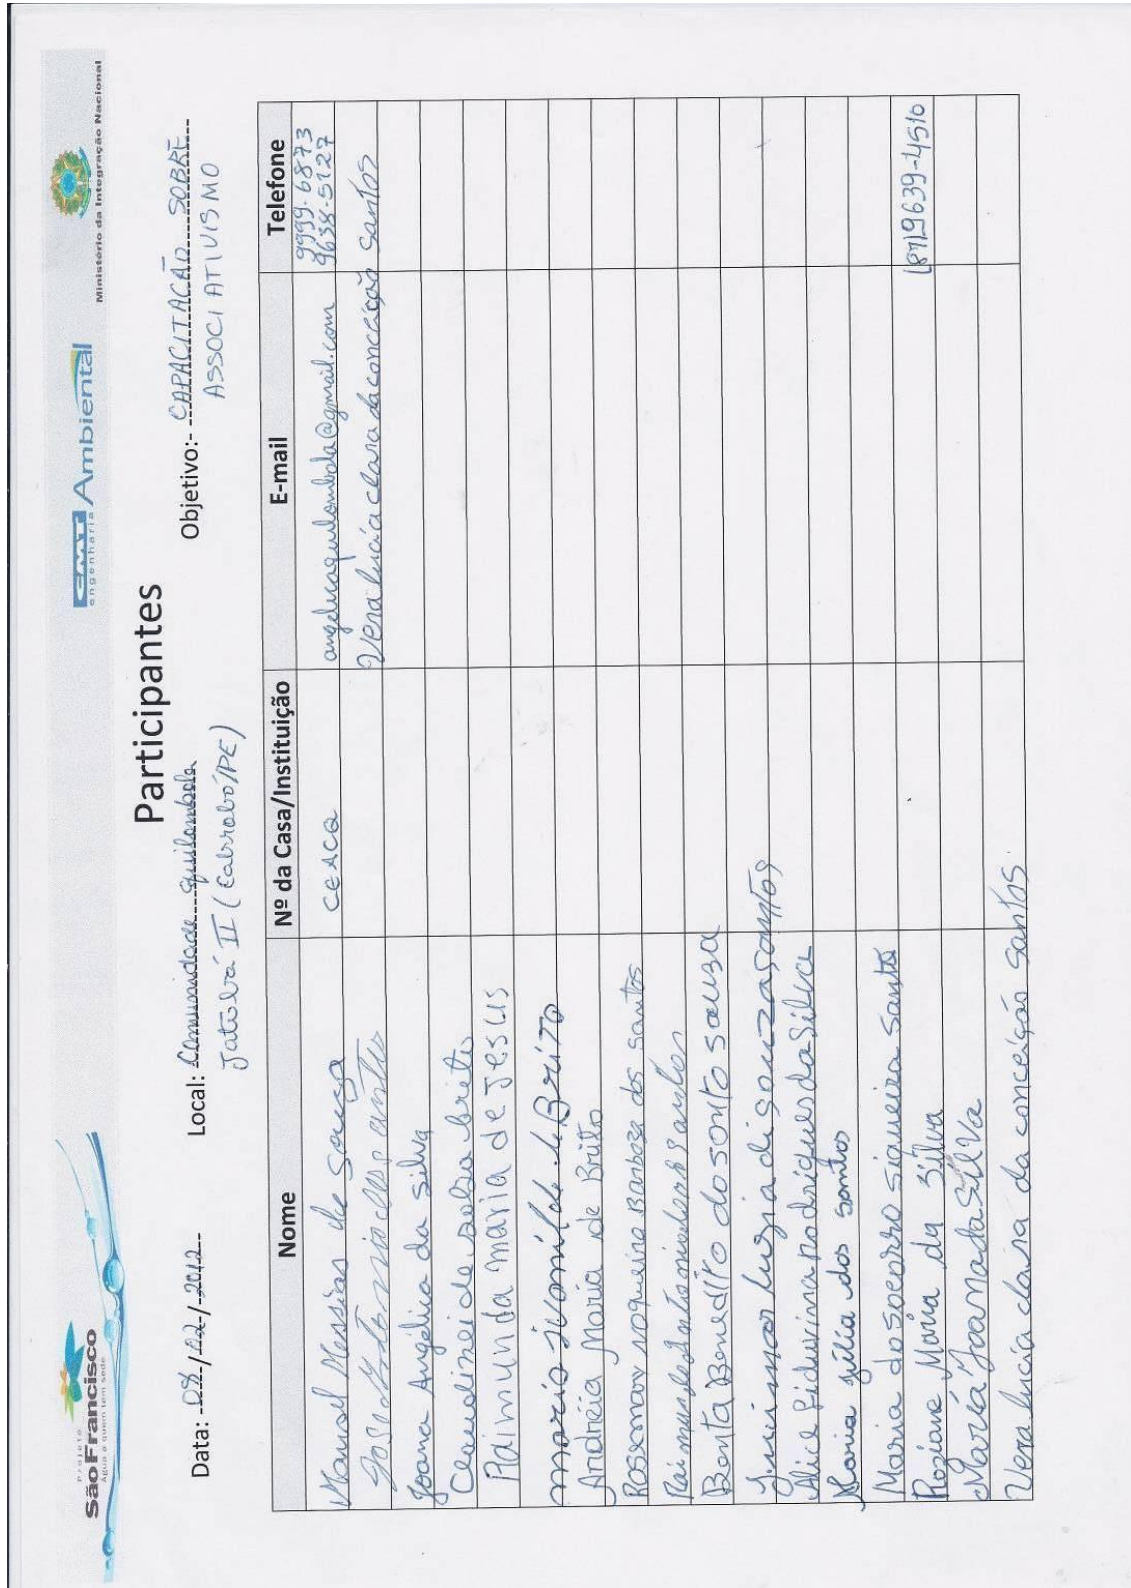 Projeto
São Francisco
Água a quem tem sede
CMT
engenharia Ambiental
Ministério da Integração Nacional
Participantes
Data: 08/02/2012 Local: Comunidade quilombola Objetivo:- CAPACITAÇÃO SOBRE
Jatobá II (Cabrobó/PE) ASSOCIATIVISMO
Nome Nº da Casa/Instituição E-mail Telefone
Manoel Messias de Souza CEACA angelicaquilombola@gmail.com 9999-6873
9638-5127
Vera lucia clara da conceição Santos
Joana Angélica da Silva
Claudinei de brito
Raimunda maria de Jesus
maria ivonilde de Brito
Andréia Maria de Brito
Rosemary nogueira Barboza dos santos
Benta Benedito do sonto souza
luzia de souza santos
Alice Rodrigues da Silva
Maria júlia dos santos
Maria do socorro siqueira santos
Roziane Maria da Silva (87)9639-4510
Maria Joana da SilVa
Vera lucia clara da conceição Santos.